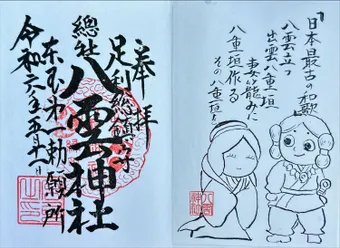 「日本最古の和歌」
八雲立つ
出雲八重垣
妻籠みに
八重垣作る
その八重垣を
八雲神社
奉拝
足利総鎮守
總社
八雲神社
勅願所
令和六年五月